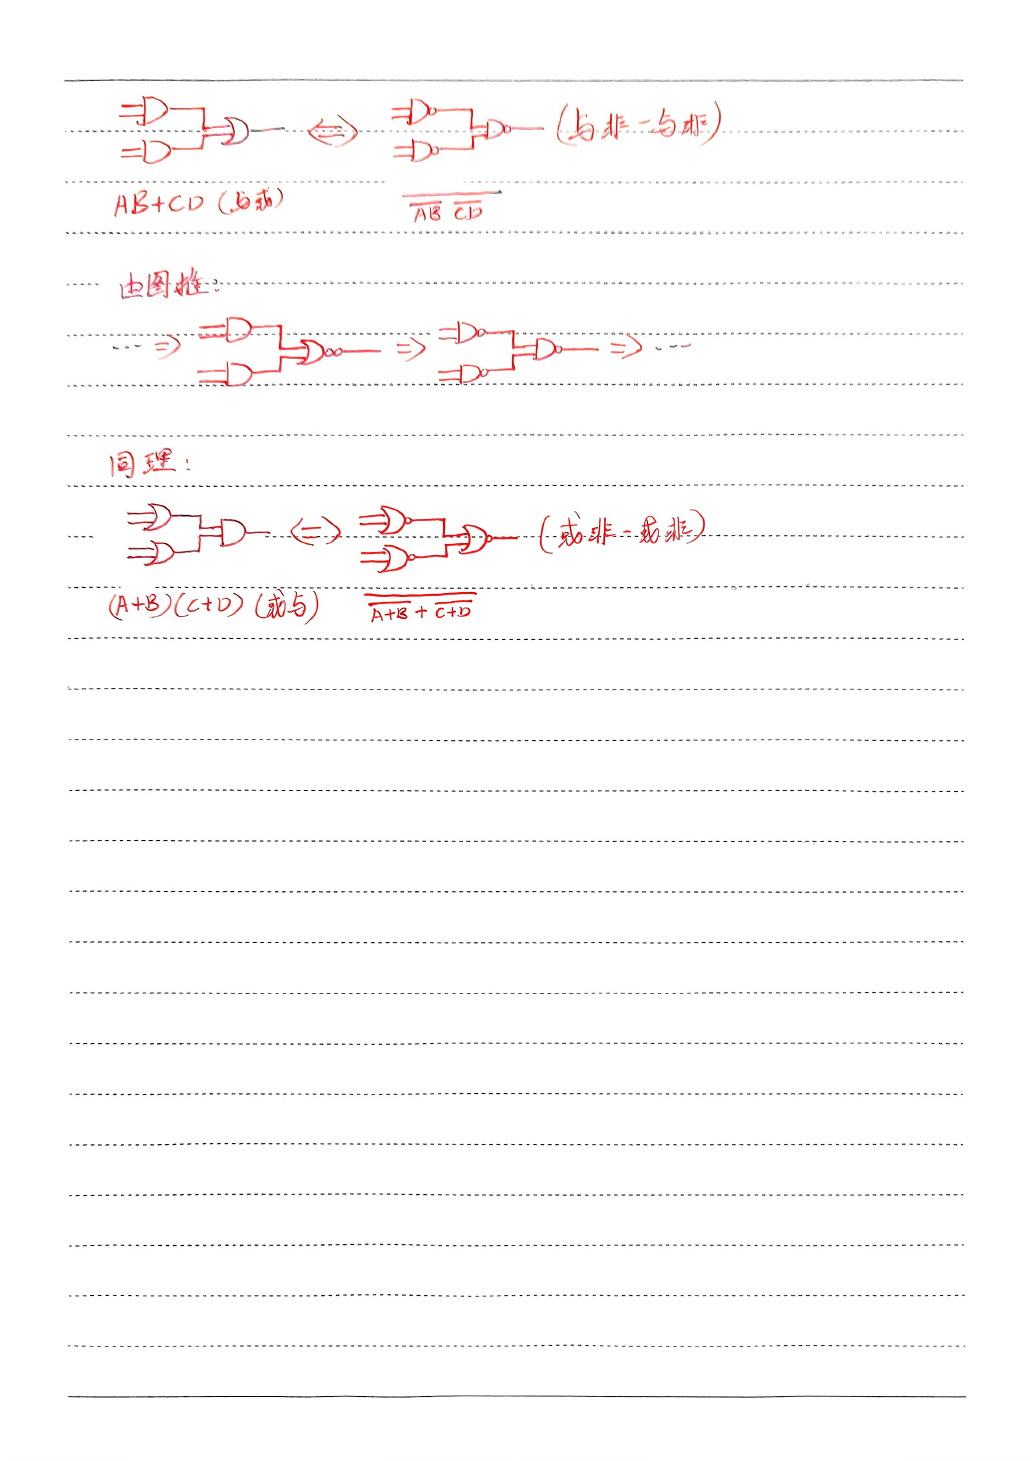 (与非-与非)
AB+CD (与或) \overline{\overline{AB} \overline{CD}}
由图推:
... ⇒ ⇒ ⇒ ...
同理:
⇔ (或非-或非)
(A+B)(C+D) (或与) \overline{\overline{A+B} + \overline{C+D}}